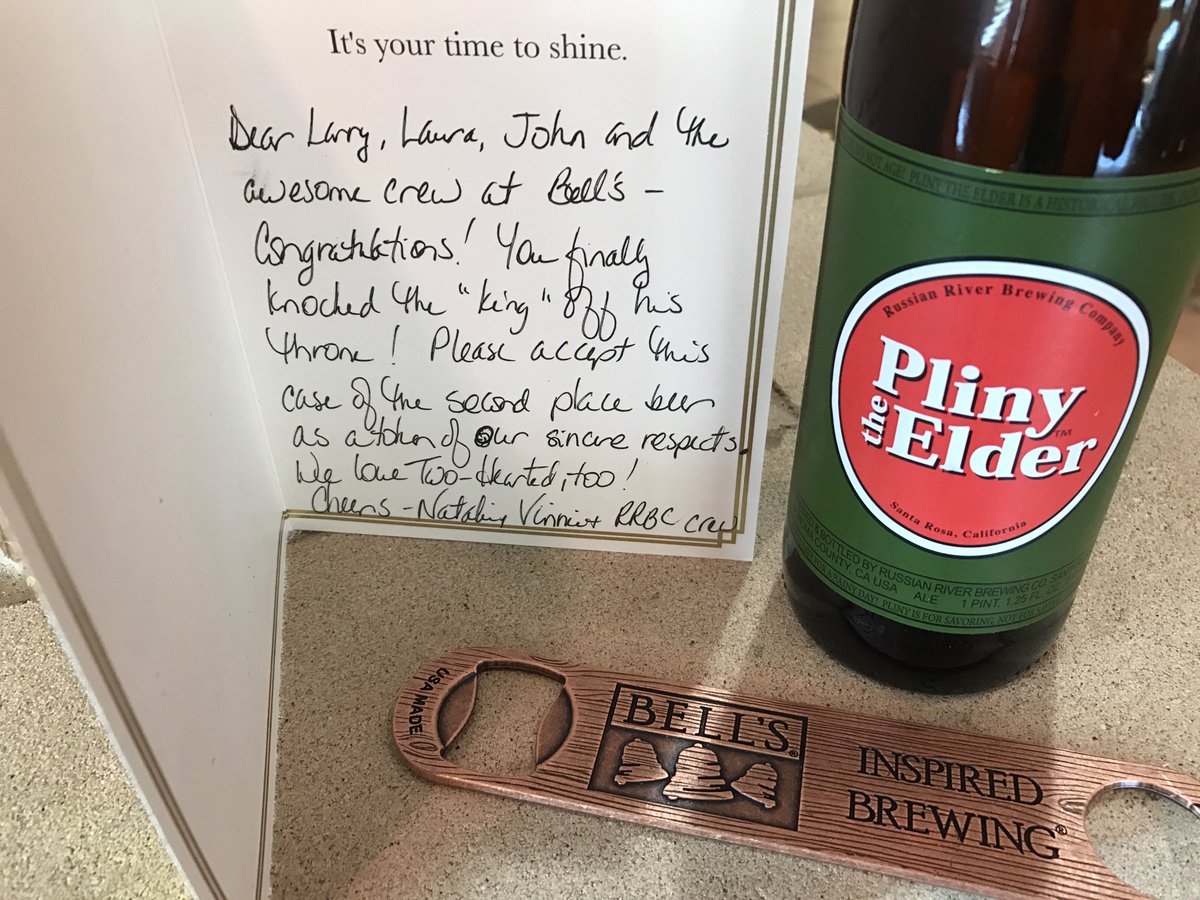 It's your time to shine.
Dear Larry, Laura, John and the
awesome crew at Bell's –
Congratulations! You finally
knocked the "king" off his
throne! Please accept this
case of the second place beer
as a token of our sincere respects.
We love Two-Hearted, too!
Cheers – Natalie, Vinnie + RRBC crew
DO NOT AGE! PLINY THE ELDER IS A HISTORICAL
Russian River Brewing Company
Pliny
the
Elder™
Santa Rosa, California
& BOTTLED BY RUSSIAN RIVER BREWING CO.
COUNTY, CA USA ALE 1 PINT, 1.25 FL.
FOR A RAINY DAY! PLINY IS FOR SAVORING, NOT FOR
USA MADE
BELL'S®
INSPIRED
BREWING®